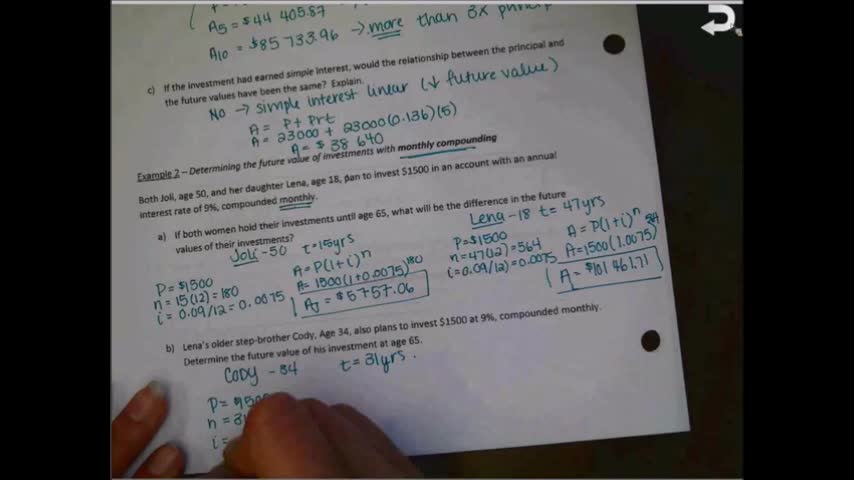 A5 = $44 405.87
A10 = $85 733.96 → more than 3X
c) If the investment had earned simple interest, would the relationship between the principal and
the future values have been the same? Explain.
No → simple interest linear (↓ future value)
A = P + Prt
A = 23000 + 23000(0.136)(5)
A = $38 640
Example 2 – Determining the future value of investments with monthly compounding
Both Joli, age 50, and her daughter Lena, age 18, plan to invest $1500 in an account with an annual
interest rate of 9%, compounded monthly.
a) If both women hold their investments until age 65, what will be the difference in the future
values of their investments?
Joli - 50 t = 15yrs
P = $1500
n = 15(12) = 180
i = 0.09/12 = 0.0075
A = P(1+i)^n
A = 1500(1+0.0075)^180
AJ = $5757.06
Lena - 18 t = 47yrs
P = $1500
n = 47(12) = 564
i = 0.09/12 = 0.0075
A = P(1+i)^n
A = 1500(1.0075)^564
A = $101 461.71
b) Lena's older step-brother Cody, Age 34, also plans to invest $1500 at 9%, compounded monthly.
Determine the future value of his investment at age 65.
Cody - 34 t = 31yrs.
P = $1500
n = 31
i =